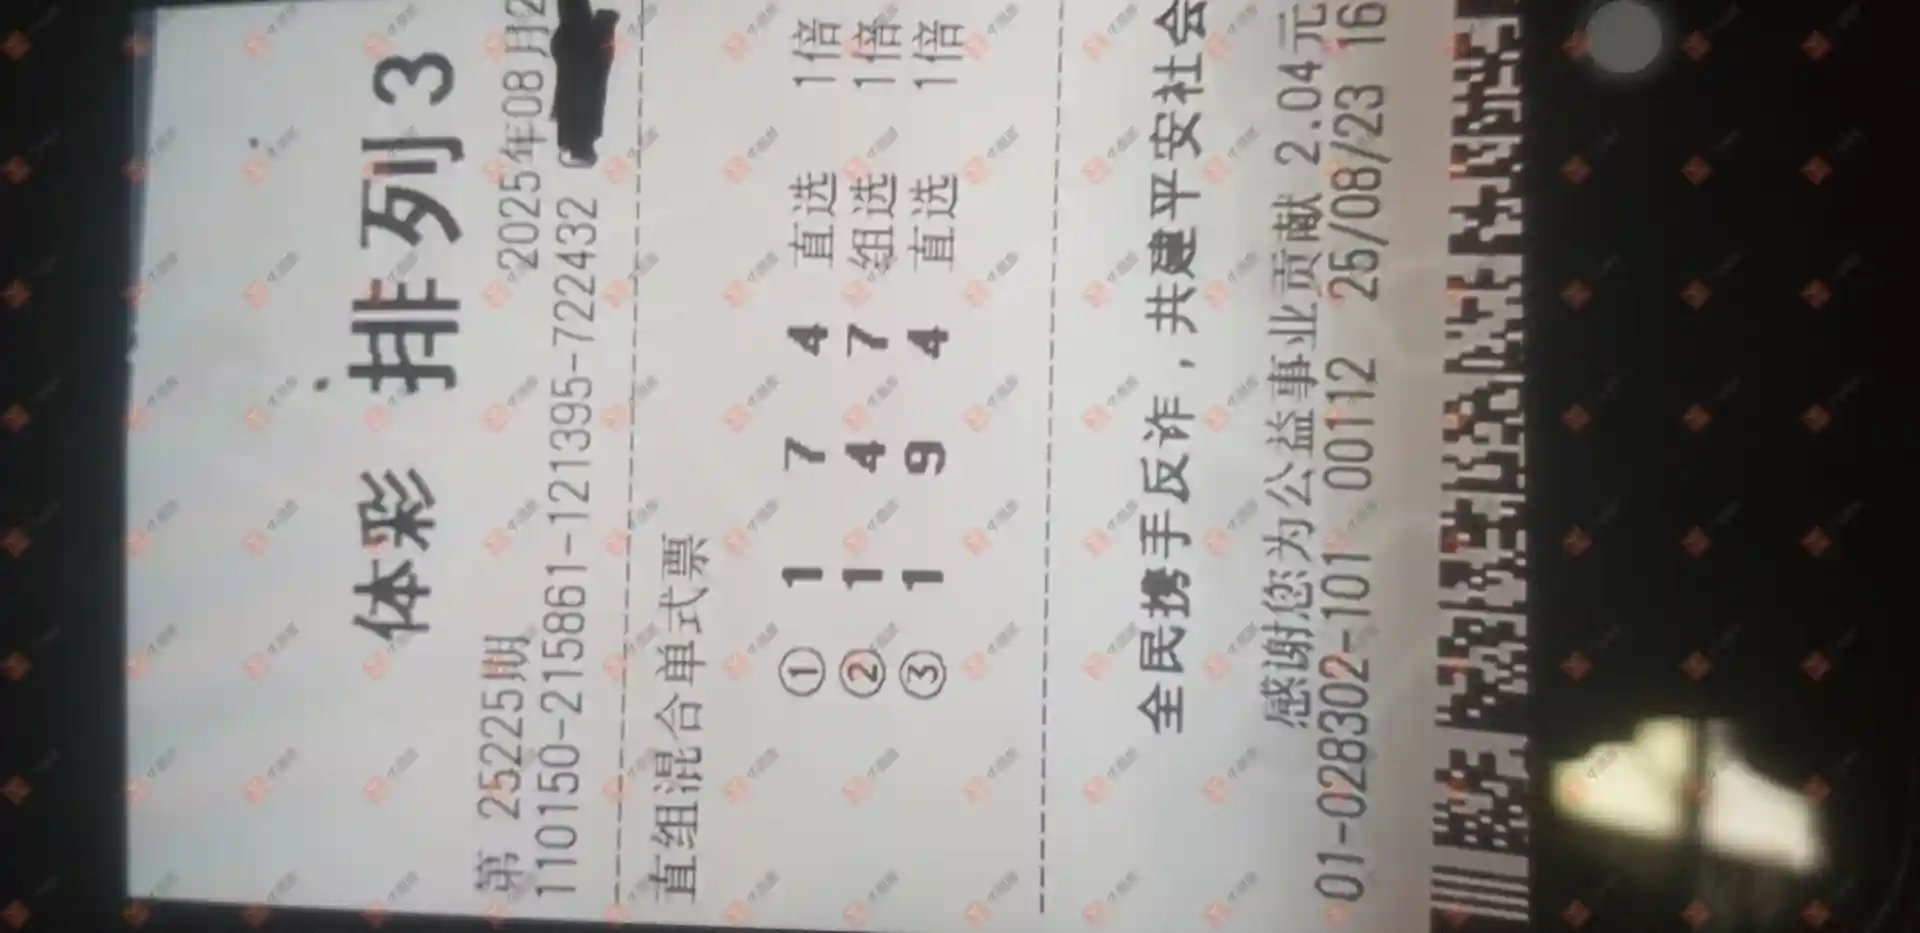 体彩 排列3
第 25225期 2025年08月2
110150-215861-121395-722432
直组混合单式票
① 1 7 4 直选 1倍
② 1 4 7 组选 1倍
③ 1 9 4 直选 1倍
全民携手反诈，共建平安社会
感谢您为公益事业贡献 2.04元
01-028302-101 00112 25/08/23 16